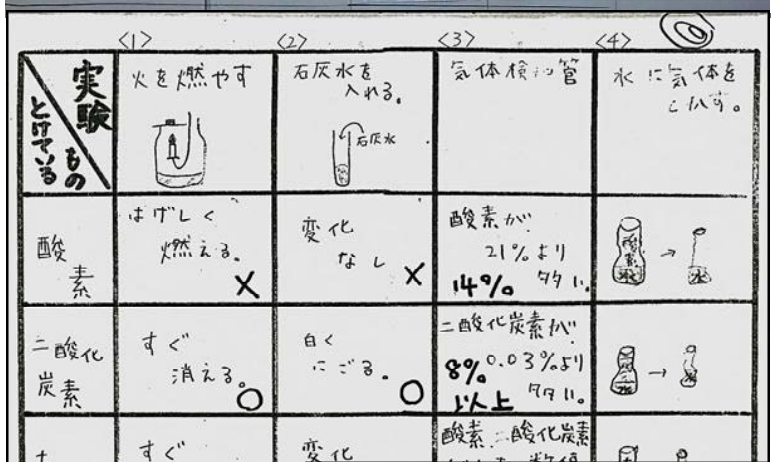 〈1〉 〈2〉 〈3〉 〈4〉
実験
とけている
もの
火を燃やす
石灰水を
入れる。
石灰水
気体検知管
水に気体を
とかす。
酸
素
はげしく
燃える。
×
変化
なし
×
酸素が
21%より
14% 多い。
酸素
水
水
二酸化
炭素
すぐ
消える。
○
白く
にごる。
○
二酸化炭素が
8% 0.03%より
以上 多い。
すぐ
変化
酸素、二酸化炭素